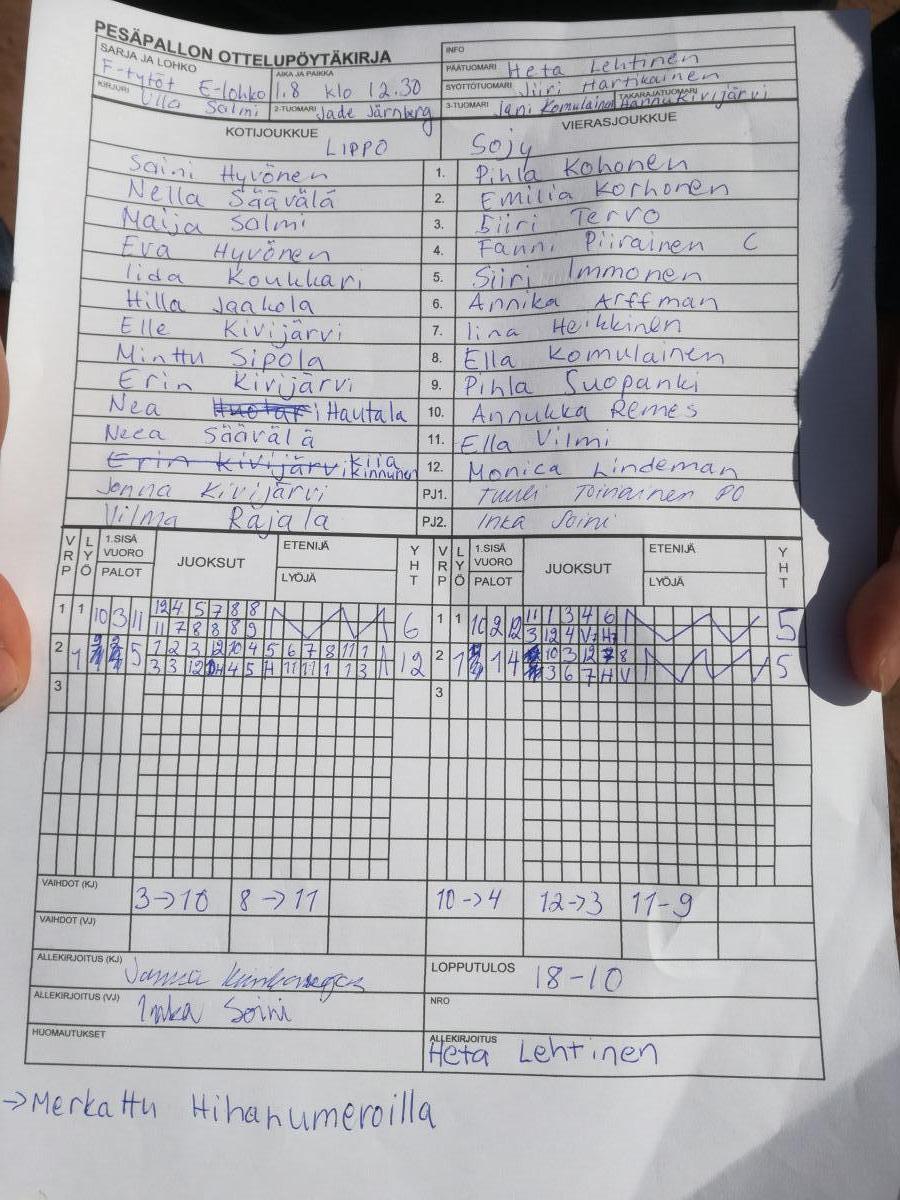 PESÄPALLON OTTELUPÖYTÄKIRJA
SARJA JA LOHKO F-tytöt E-lohko
AIKA JA PAIKKA 1.8 klo 12.30
KIRJURI Ulla Salmi
2-TUOMARI Jade Järnberg
INFO
PÄÄTUOMARI Heta Lehtinen
SYÖTTÖTUOMARI Siiri Hartikainen
3-TUOMARI Jani Komulainen
TAKARAJATUOMARI Hannu Kivijärvi
KOTIJOUKKUE LIPPO
VIERASJOUKKUE Sojy
Saini Hyvönen 1. Pihla Kohonen
Nella Säävälä 2. Emilia Korhonen
Maija Salmi 3. Siiri Tervo
Eva Hyvönen 4. Fanni Piirainen C
Iida Koukkari 5. Siiri Immonen
Hilla Jaakola 6. Annika Arffman
Elle Kivijärvi 7. Iina Heikkinen
Minttu Sipola 8. Ella Komulainen
Erin Kivijärvi 9. Pihla Suopanki
Nea Huotari Hautala 10. Annukka Remes
Neea Säävälä 11. Ella Vilmi
Erin Kivijärvi Kiia Kinnunen 12. Monica Lindeman
Jonna Kivijärvi PJ1. Tuuli Toinainen PO
Vilma Rajala PJ2. Inka Soini
VRP LYÖ 1.SISÄ VUORO PALOT JUOKSUT ETENIJÄ LYÖJÄ YHT VRP LYÖ 1.SISÄ VUORO PALOT JUOKSUT ETENIJÄ LYÖJÄ YHT
1 1 10 3 11 12 4 5 7 8 8 6 1 1 10 2 12 11 1 3 4 6 5
11 7 8 8 8 9 3 12 4
2 1 5 1 2 3 12 10 4 5 6 7 8 11 1 12 2 1 14 10 3 12 7 8 5
3 3 12 4 5 H 11 11 1 1 3 3 6 7 H V
3 3
VAIHDOT (KJ) 3→10 8→11 10→4 12→3 11-9
VAIHDOT (VJ)
ALLEKIRJOITUS (KJ)
LOPPUTULOS 18-10
ALLEKIRJOITUS (VJ) Inka Soini
NRO
HUOMAUTUKSET
ALLEKIRJOITUS Heta Lehtinen
→Merkattu Hihanumeroilla